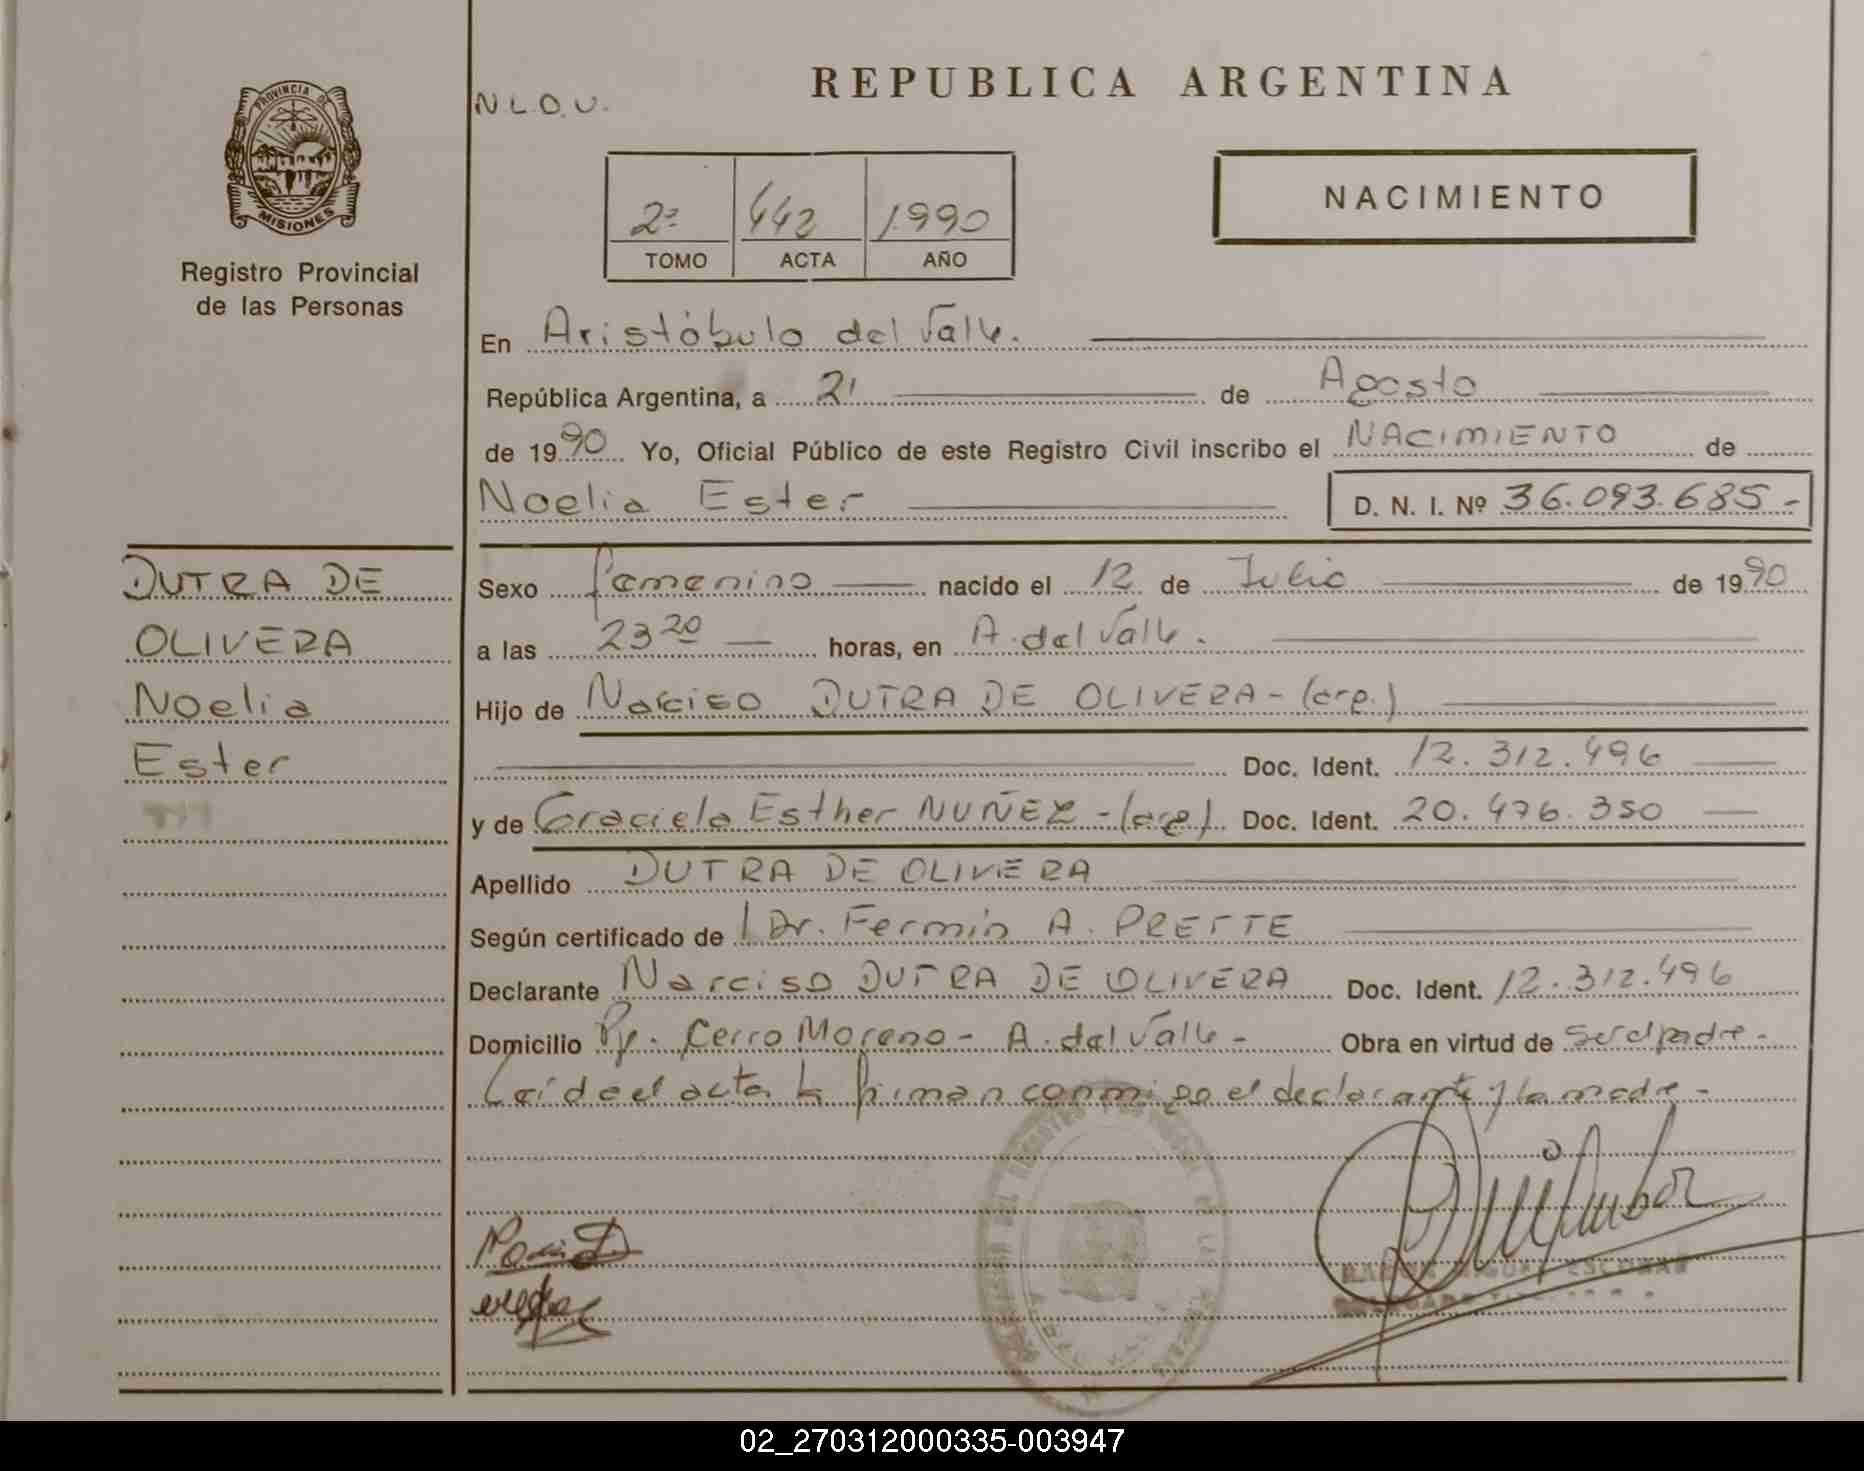 PROVINCIA DE
MISIONES
Registro Provincial
de las Personas
DUTRA DE
OLIVERA
Noelia
Ester
N.L.O.U.
REPUBLICA ARGENTINA
NACIMIENTO
2º 442 1.990
TOMO ACTA AÑO
En Aristóbulo del Valle.
República Argentina, a 21 de Agosto
de 1990 Yo, Oficial Público de este Registro Civil inscribo el NACIMIENTO de
Noelia Ester D. N. I. Nº 36.093.685.-
Sexo femenino nacido el 12 de Julio de 1990
a las 23 20 horas, en A. del Valle.
Hijo de Narciso DUTRA DE OLIVERA - (arg.)
Doc. Ident. 12.312.496
y de Graciela Esther NUÑEZ - (arg.) Doc. Ident. 20.476.350
Apellido DUTRA DE OLIVERA
Según certificado de Dr. Fermín A. PRETTE
Declarante Narciso DUTRA DE OLIVERA Doc. Ident. 12.312.496
Domicilio Pje. Cerro Moreno - A. del Valle - Obra en virtud de ser el padre -
Leída el acta la firman conmigo el declarante y la madre -
02_270312000335-003947